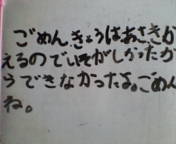 ごめんきょうはあさきが
えるのでいそがしかったか
らできなかったよ。ごめん
ね。